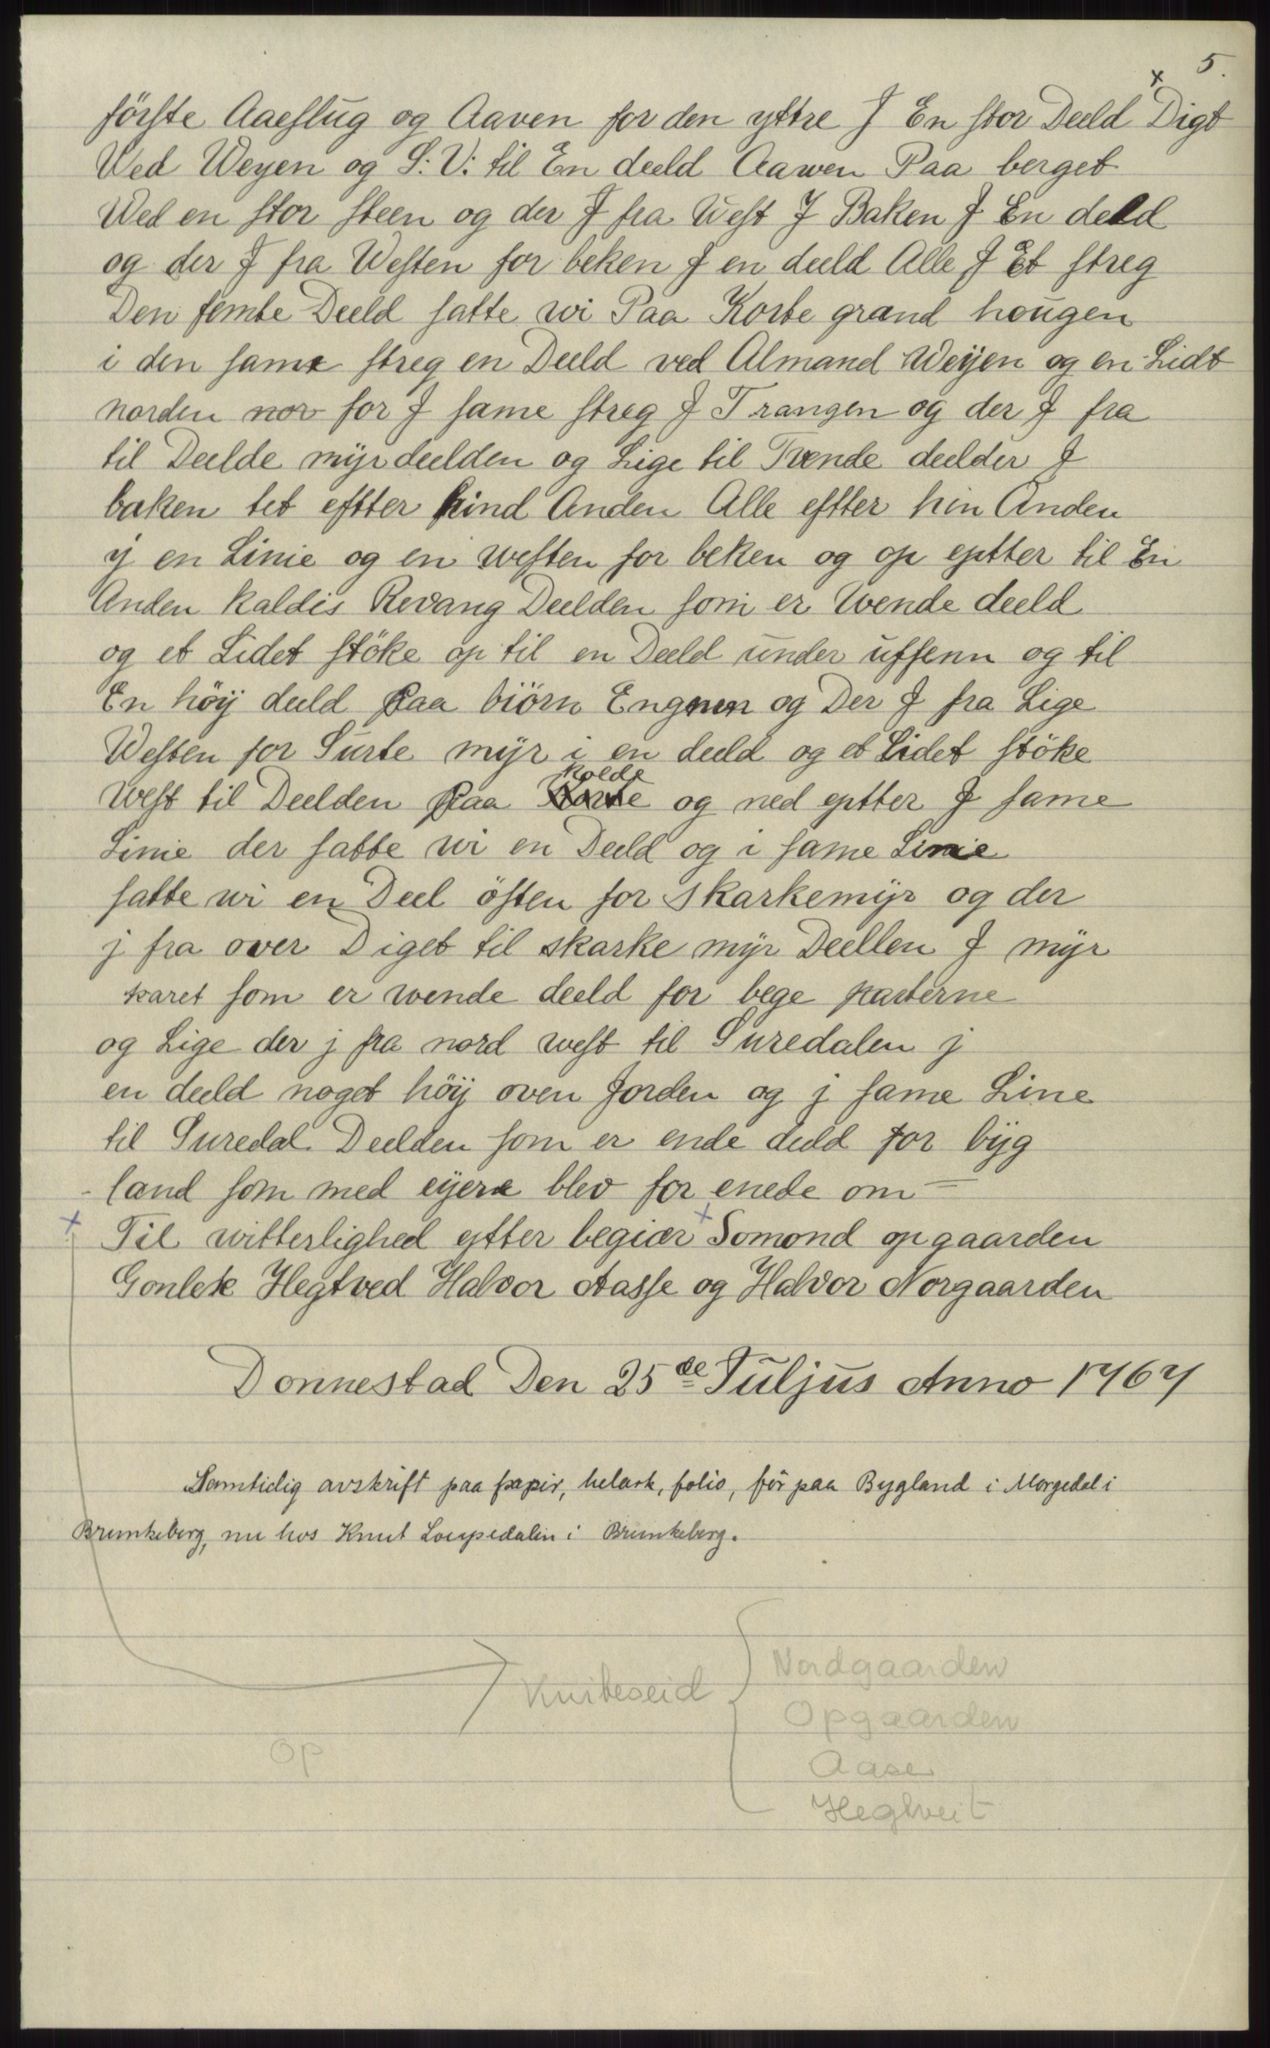 5.
förste Aaeslug og Aaven for den yttre J En stor Deeld x Digt
Wed Weyen og S: V: til En deeld Aawen Paa berget
Wed en stor steen og der J fra West J Baken J En deeld
og der J fra Westen for beken J en deeld Alle J Et streg
Den femte Deeld satte wi Paa Korte grand hougen
i den same streg en Deeld ved Almand Weijen og en Lidt
norden nor for J same streg J Trangen og der J fra
til Deelde mijrdeelden og Lige til Tvende deelder J
baken tet effter hind Anden Alle effter hin Anden
ij en Linie og en westen for beken og op eptter til En
Anden kaldis Revang Deelden som er Wende deeld
og et Lidet stöke op til en Deeld under uffenn og til
En höij deeld Paa biörn Engnen og Der J fra Lige
Westen for Surte mijr i en deeld og et Lidet stöke
kolde
West til Deelden Paa Korte og ned eptter J same
Linie der satte wi en Deeld og i same Linie
satte wi en Deel östen for skarkemijr og der
j fra over Diget til skarke mijr Deellen J mijr
karet som er wende deeld for bege parterne
og Lige der j fra nord west til Suredalen j
en deeld noget höij oven Jorden og j same Line
til Suredal Deelden som er ende deeld for bijg
land som med eijere blev for enede om =
x Til witterlighed eptter begiær x Somond opgaarden
Gonlek Hegtved Halvor Aasse og Halvor Norgaarden
Donnestad Den 25de Tuljus Anno 1767
Samtidig avskrift paa papir, helark, folio, för paa Bygland i Morgedal i
Brunkeberg, nu hos Knut Loupedalen i Brunkeberg.
Kviteseid
Nordgaarden
Opgaarden
Aase
Hegtveit
Op